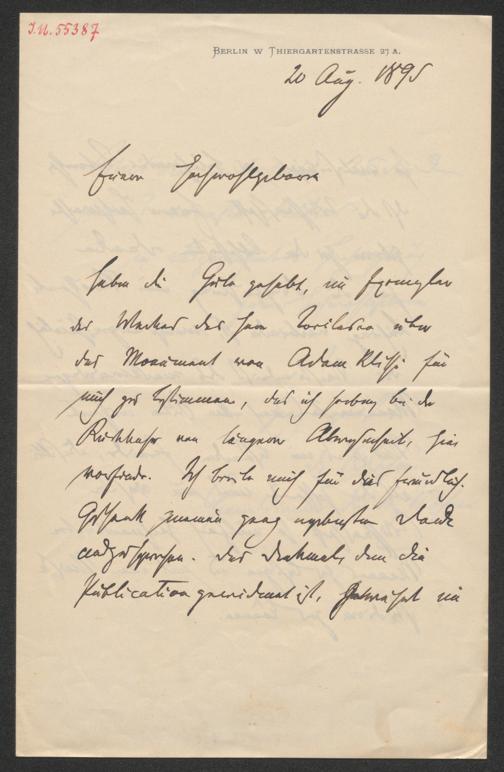 I.N. 55387
BERLIN W THIERGARTENSTRASSE 27 A.
20 Aug. 1895
Euer Hochwohlgeboren
haben die Güte gehabt, ein Exemplar
des Werkes des Herrn Tocilesco über
das Monument von Adam Klissi für
mich zu bestimmen, das ich soeben bei der
Rückkehr von längerer Abwesenheit, hier
vorfinde. Ich beeile mich für dies freundliche
Geschenk meinen ganz ergebensten Dank
auszusprechen. Das Denkmal, dem die
Publication gewidmet ist, gewährt ein